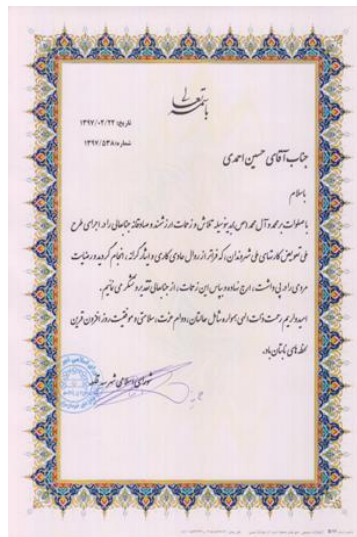 باسمه تعالی
تاریخ: ۱۳۹۷/۰۴/۲۲
شماره: ۱۳۹۷/۵۳۸
جناب آقای حسین احمدی
باسلام
باصلوات بر محمد و آل محمد (ص) بدینوسیله تلاش و زحمات ارزشمند و صادقانه جنابعالی را در اجرای طرح
ملی تعویض کارتهای ملی شهروندان، که فراتر از روال عادی کاری و ایثارگرانه، انجام گردید و رضایت
مردمی را در پی داشت، ارج نهاده و بپاس این زحمات، از جنابعالی تقدیر و تشکر می نمائیم.
امیدواریم رحمت ذات الهی همواره شامل حالتان، دوام عزت، سلامتی و موفقیت روز افزون قرین
لحظه های نابتان باد.
شورای اسلامی شهر سه قلعه